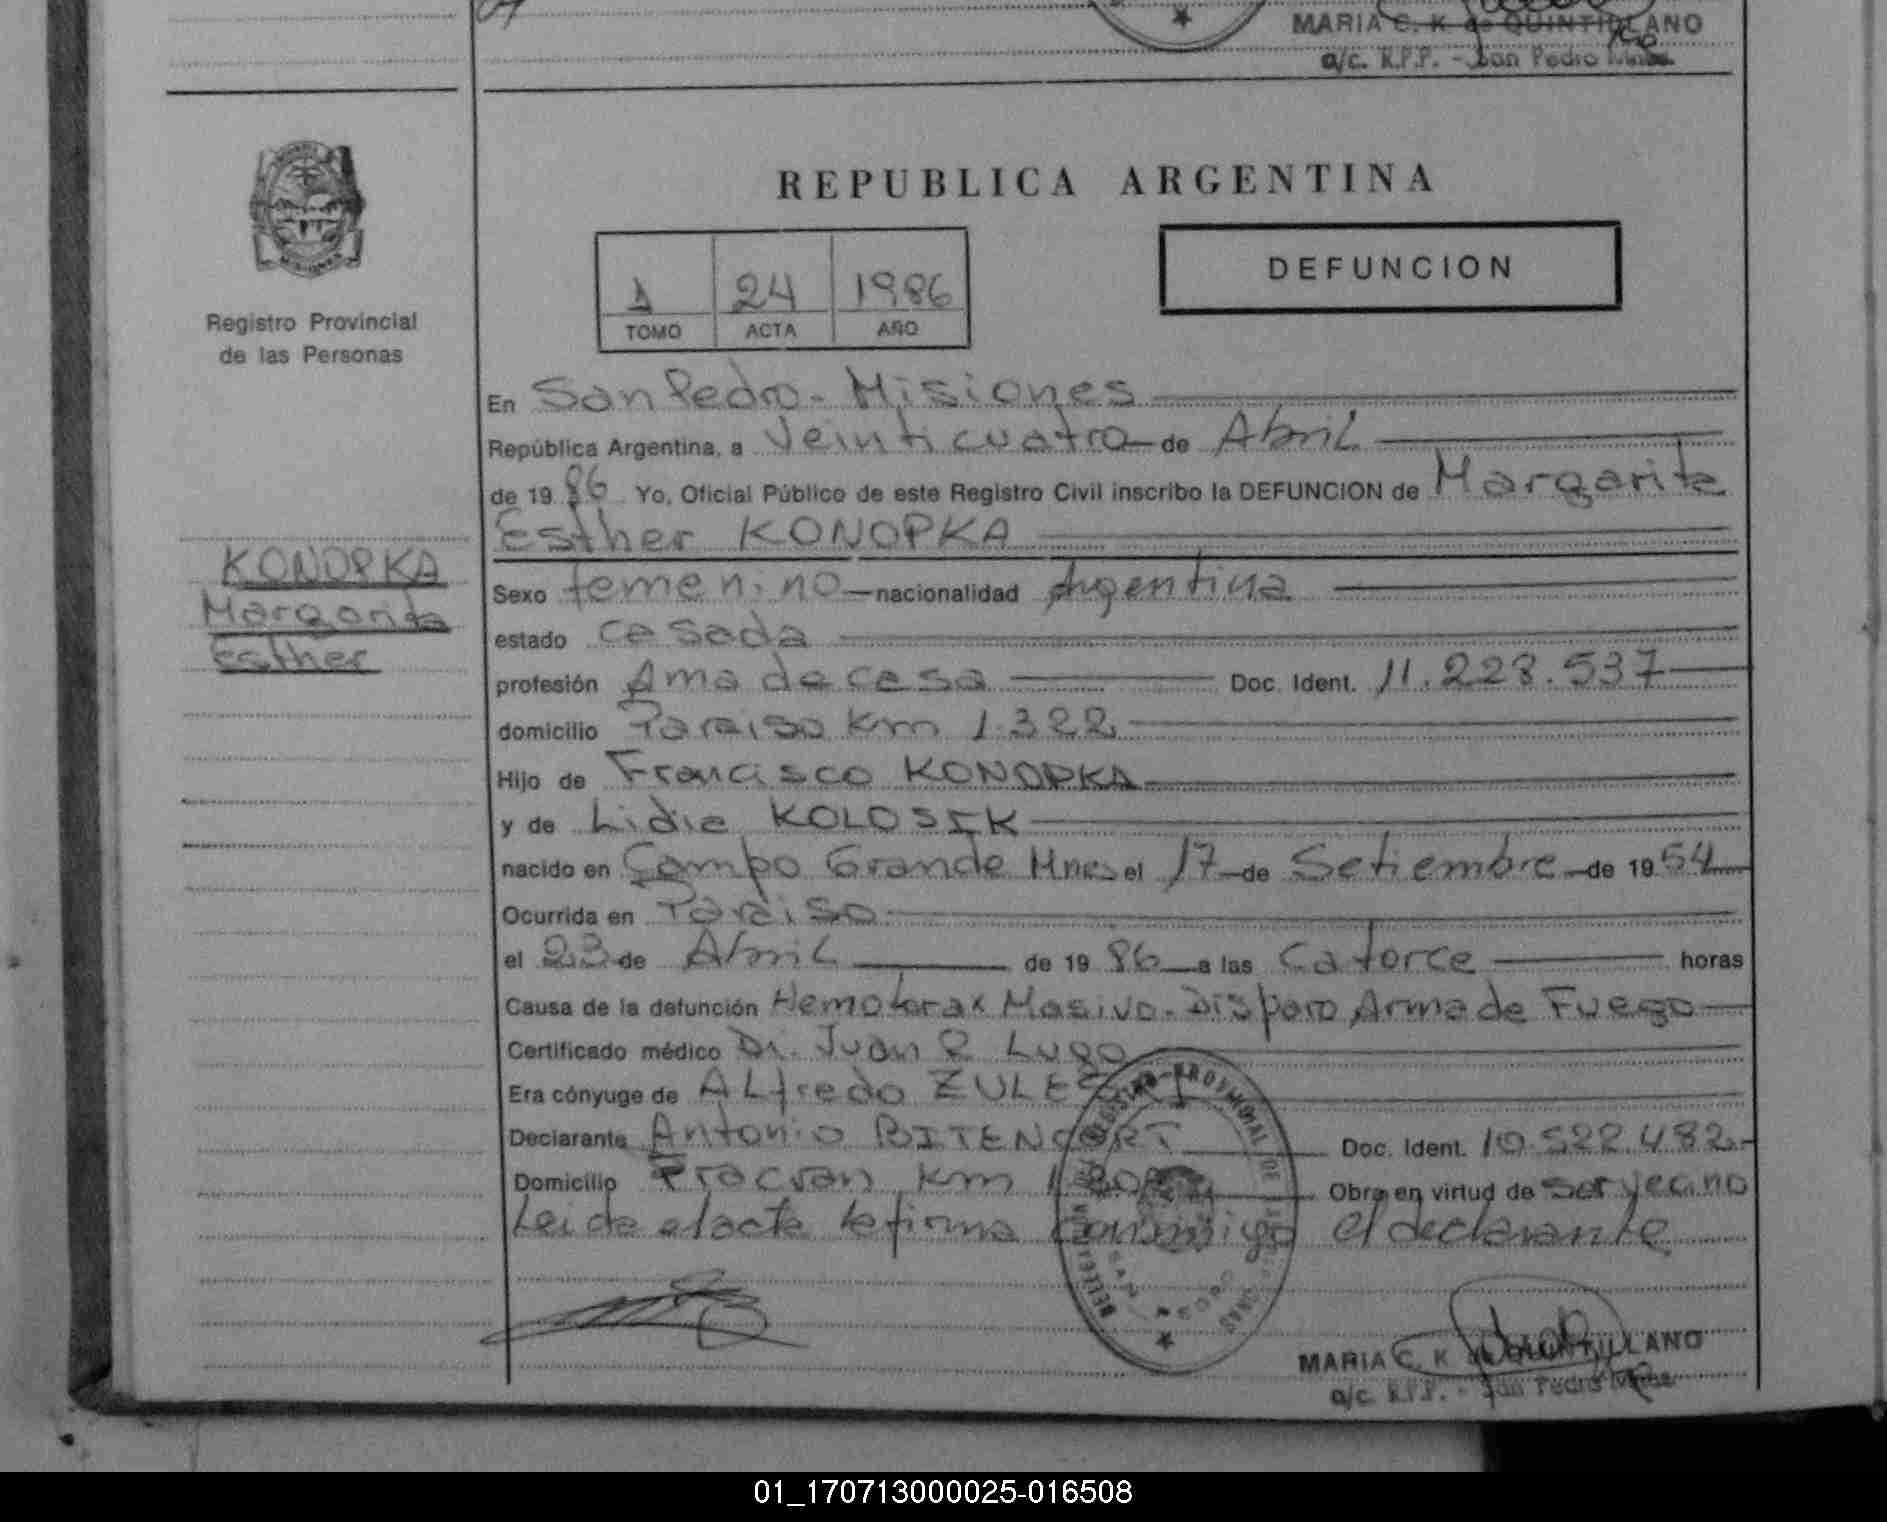 MARIA C. K. de QUINTILLANO
a/c. R.P.P. - San Pedro Mnes.
REPUBLICA ARGENTINA
DEFUNCION
1 24 1986
TOMO ACTA AÑO
MISIONES
Registro Provincial
de las Personas
En San Pedro - Misiones
República Argentina, a Veinticuatro de Abril
de 1986 Yo, Oficial Público de este Registro Civil inscribo la DEFUNCION de Margarita
Esther KONOPKA
KONOPKA
Margarita
Esther
Sexo femenino nacionalidad Argentina
estado casada
profesión Ama de casa Doc. Ident. 11.228.537
domicilio Paraiso Km 1.322
Hijo de Francisco KONOPKA
y de Lidia KOLOSIK
nacido en Campo Grande Mnes el 17 de Setiembre de 1954
Ocurrida en Paraiso
el 23 de Abril de 1986 a las Catorce horas
Causa de la defunción Hemotorax Masivo - Disparo Arma de Fuego
Certificado médico Dr. Juan R Lugo
Era cónyuge de Alfredo
Declarante Antonio BITENCORT Doc. Ident. 10.522.482
Domicilio Km Obra en virtud de ser vecino
Leida el acta la firma conmigo el declarante
REGISTRO PROVINCIAL DE
SAN
MARIA C. K de QUINTILLANO
a/c. R.P.P. - San Pedro Mnes
01_170713000025-016508